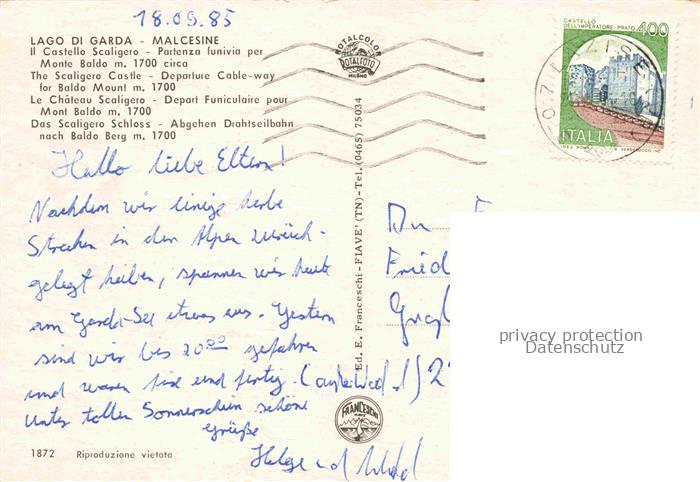 18.09.85
LAGO DI GARDA - MALCESINE
Il Castello Scaligero - Partenza funivia per
Monte Baldo m. 1700 circa
The Scaligero Castle - Departure Cable-way
for Baldo Mount m. 1700
Le Château Scaligero - Depart Funiculaire pour
Mont Baldo m. 1700
Das Scaligero Schloss - Abgehen Drahtseilbahn
nach Baldo Berg m. 1700
Hallo liebe Eltern!
Nachdem wir einige herbe
Strecken in den Alpen zurück-
gelegt haben, spannen wir heute
am Garda-See etwas aus. Gestern
sind wir bis 20⁰⁰ gefahren
und waren fix und fertig.
Unter tollem Sonnenschein schöne
Grüße
Helga und
1872 Riproduzione vietata
ROTALCOLOR
ROTALFOTO
MILANO
Ed. E. Franceschi - FIAVE' (TN) - Tel. (0465) 75034
FRANCESCHI
CASTELLO
DELL'IMPERATORE - PRATO
400
ITALIA
LAZISE
An
Fried
privacy protection
Datenschutz